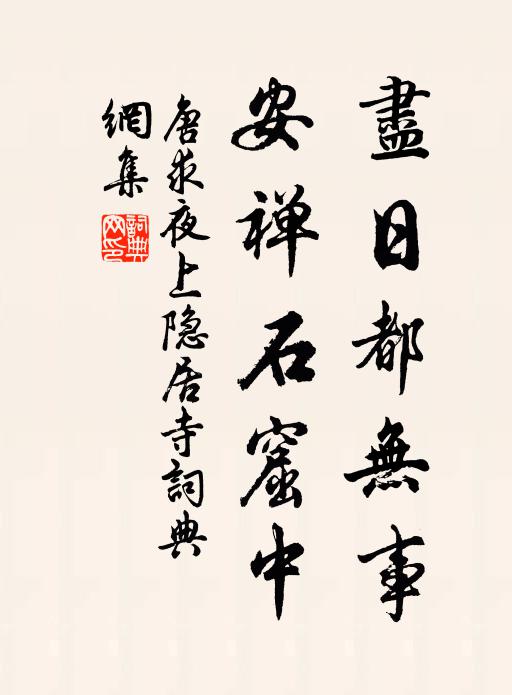 盡日都無事
安禅石窟中
唐求夜上隐居寺詞典
網集
詞典
网印